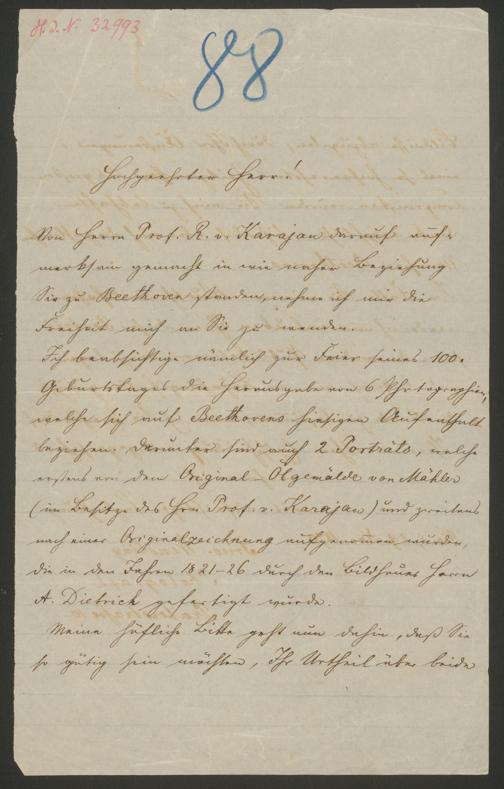 H.I.N. 32993
88
Hochgeehrter Herr!
Von Herrn Prof. R. v. Karajan darauf auf-
merksam gemacht in wie naher Beziehung
Sie zu Beethoven standen, nehme ich mir die
Freiheit mich an Sie zu wenden.
Ich beabsichtige nämlich zur Feier seines 100.
Geburtstages die Herausgabe von 6 Photographien,
welche sich auf Beethovens hiesigen Aufenthalt
beziehen. Darunter sind auch 2 Porträts, welche
erstens von dem Original-Ölgemälde von Mähler
(im Besitze des Hrn Prof. v. Karajan) und zweitens
nach einer Originalzeichnung aufgenommen wurden,
die in den Jahren 1821-26 durch den Bildhauer Herrn
A. Dietrich gefertigt wurde.
Meine höfliche Bitte geht nun dahin, daß Sie
so gütig sein möchten, Ihr Urtheil über beide